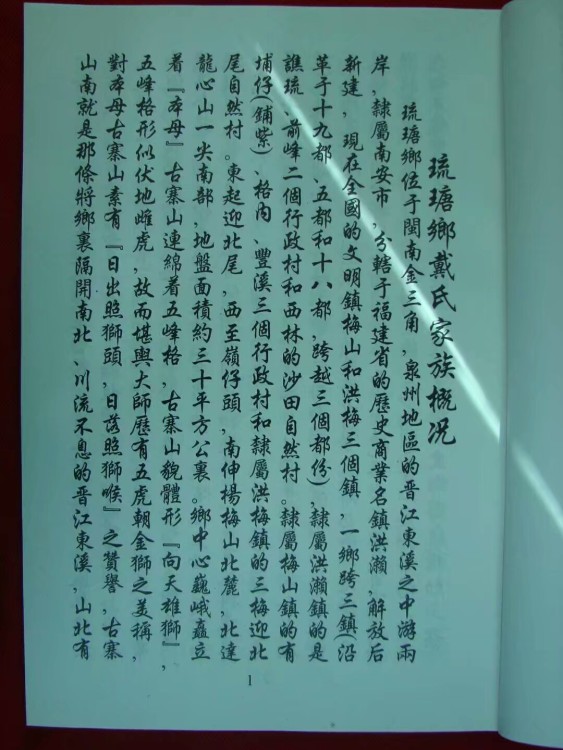 琉瑭鄉戴氏家族概况
琉瑭鄉位于閩南金三角，泉州地區的晋江東溪之中游兩
岸，隸屬南安市，分轄于福建省的歷史商業名鎮洪瀨，解放后
新建，現在全國的文明鎮梅山和洪梅三個鎮，一鄉跨三鎮(沿
革于十九都、五都和十八都，跨越三個都份)，隸屬洪瀨鎮的是
譙琉、前峰二個行政村和西林的沙田自然村。隸屬梅山鎮的有
埔仔(鋪紫)、格内、豐溪三個行政村和隸屬洪梅鎮的三梅迎北
尾自然村。東起迎北尾，西至嶺仔頭，南伸楊梅山北麓，北達
龍心山一尖南部，地盤面積約三十平方公裏。鄉中心巍峨矗立
着『夲母』古寨山連綿着五峰格，古寨山貌體形『向天雄獅』，
五峰格形似伏地雌虎，故而堪輿大師歷有五虎朝金獅之美稱，
對夲母古寨山素有『日出照獅頭，日落照獅喉』之贊譽，古寨
山南就是那條將鄉裏隔開南北、川流不息的晋江東溪，山北有
1